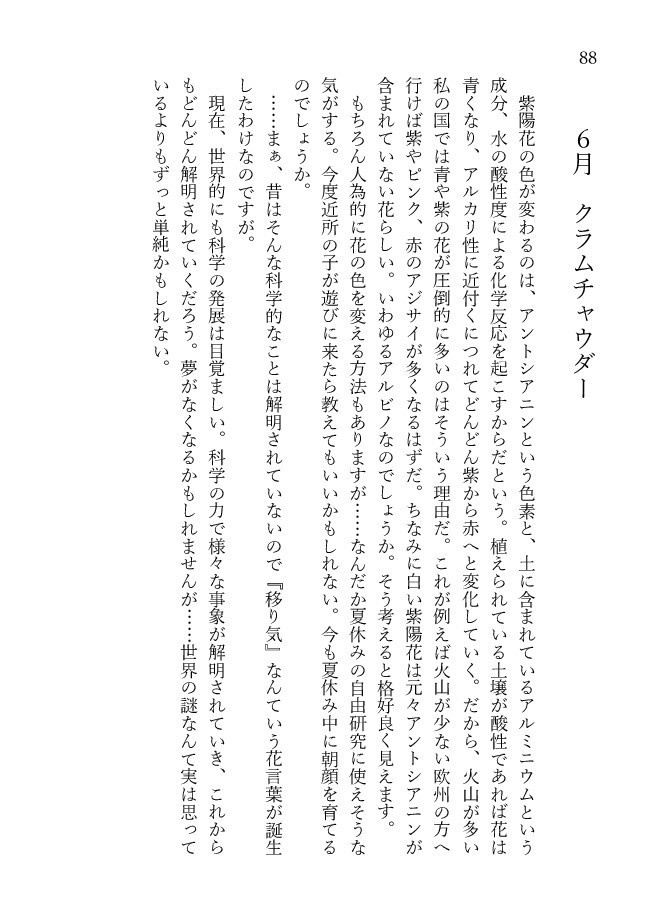 88
6月　クラムチャウダー
　紫陽花の色が変わるのは、アントシアニンという色素と、土に含まれているアルミニウムという
成分、水の酸性度による化学反応を起こすからだという。植えられている土壌が酸性であれば花は
青くなり、アルカリ性に近付くにつれてどんどん紫から赤へと変化していく。だから、火山が多い
私の国では青や紫の花が圧倒的に多いのはそういう理由だ。これが例えば火山が少ない欧州の方へ
行けば紫やピンク、赤のアジサイが多くなるはずだ。ちなみに白い紫陽花は元々アントシアニンが
含まれていない花らしい。いわゆるアルビノなのでしょうか。そう考えると格好良く見えます。
　もちろん人為的に花の色を変える方法もありますが……なんだか夏休みの自由研究に使えそうな
気がする。今度近所の子が遊びに来たら教えてもいいかもしれない。今も夏休み中に朝顔を育てる
のでしょうか。
　……まぁ、昔はそんな科学的なことは解明されていないので『移り気』なんていう花言葉が誕生
したわけなのですが。
　現在、世界的にも科学の発展は目覚ましい。科学の力で様々な事象が解明されていき、これから
もどんどん解明されていくだろう。夢がなくなるかもしれませんが……世界の謎なんて実は思って
いるよりもずっと単純かもしれない。